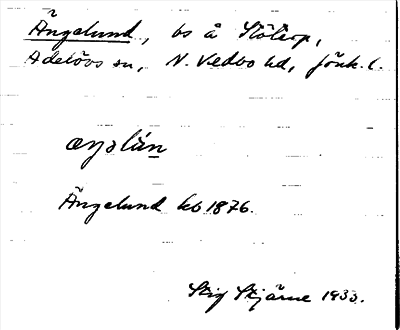 Ängelund, bs å Stötorp,
Adelövs sn, N. Vedbo hd, Jönk. l.
Ängelund kb 1876.
Stig Stjärne 1933.